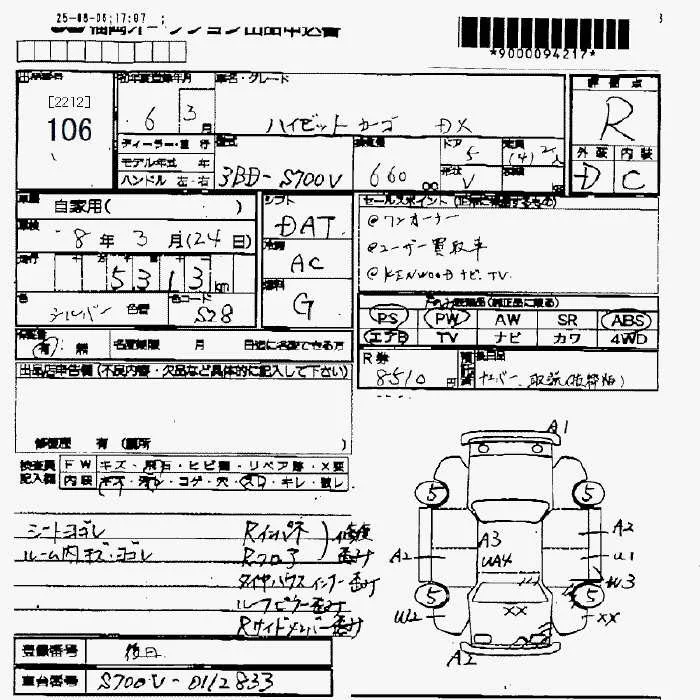 25-08-06;17:07 ;
福岡オークション出品申込書
*9000094217*
出品番号
[2212]
106
初年度登録年月
6 3月
車名・グレード
ハイゼット カーゴ DX
評価点
R
外装 内装
D C
ディーラー・並行
モデル年式 年
ハンドル 左・右
型式
3BD-S700V
排気量
660 cc
ドア
5
形状
V
定員
(4) 2人
車歴
自家用( )
車検
8年 3月(24日)
走行
5 3 1 3 km
色
シルバー 色替
色コード
S28
シフト
DAT
冷房
AC
燃料
G
セールスポイント (正常に作動するもの)
@ワンオーナー
@ユーザー買取車
@KENWOODナビ.TV.
PS PW AW SR ABS
エアB TV ナビ カワ 4WD
有 無
名変期限 月 日迄に名変できる方
R券
8510円
出品店申告欄(不具内容・欠品など具体的に記入して下さい)
修復歴 有(箇所 )
検査員記入欄
FW キズ・飛石・ヒビ割・リペア跡・X要
内装 キズ・汚レ・コゲ・穴・スレ・キレ・欠レ
シートヨゴレ
ルーム内キズ・ヨゴレ
Rインパネ
Rフロア
修復
歪み
タイヤハウスインナー歪み
ルーフピラー歪み
Rサイドメンバー歪み
A1
5 5
A3
UA4
A2
U1
A2
W3
5 5
W2
XX
XX
A2
登録番号
後日
車台番号 S700V-0112833